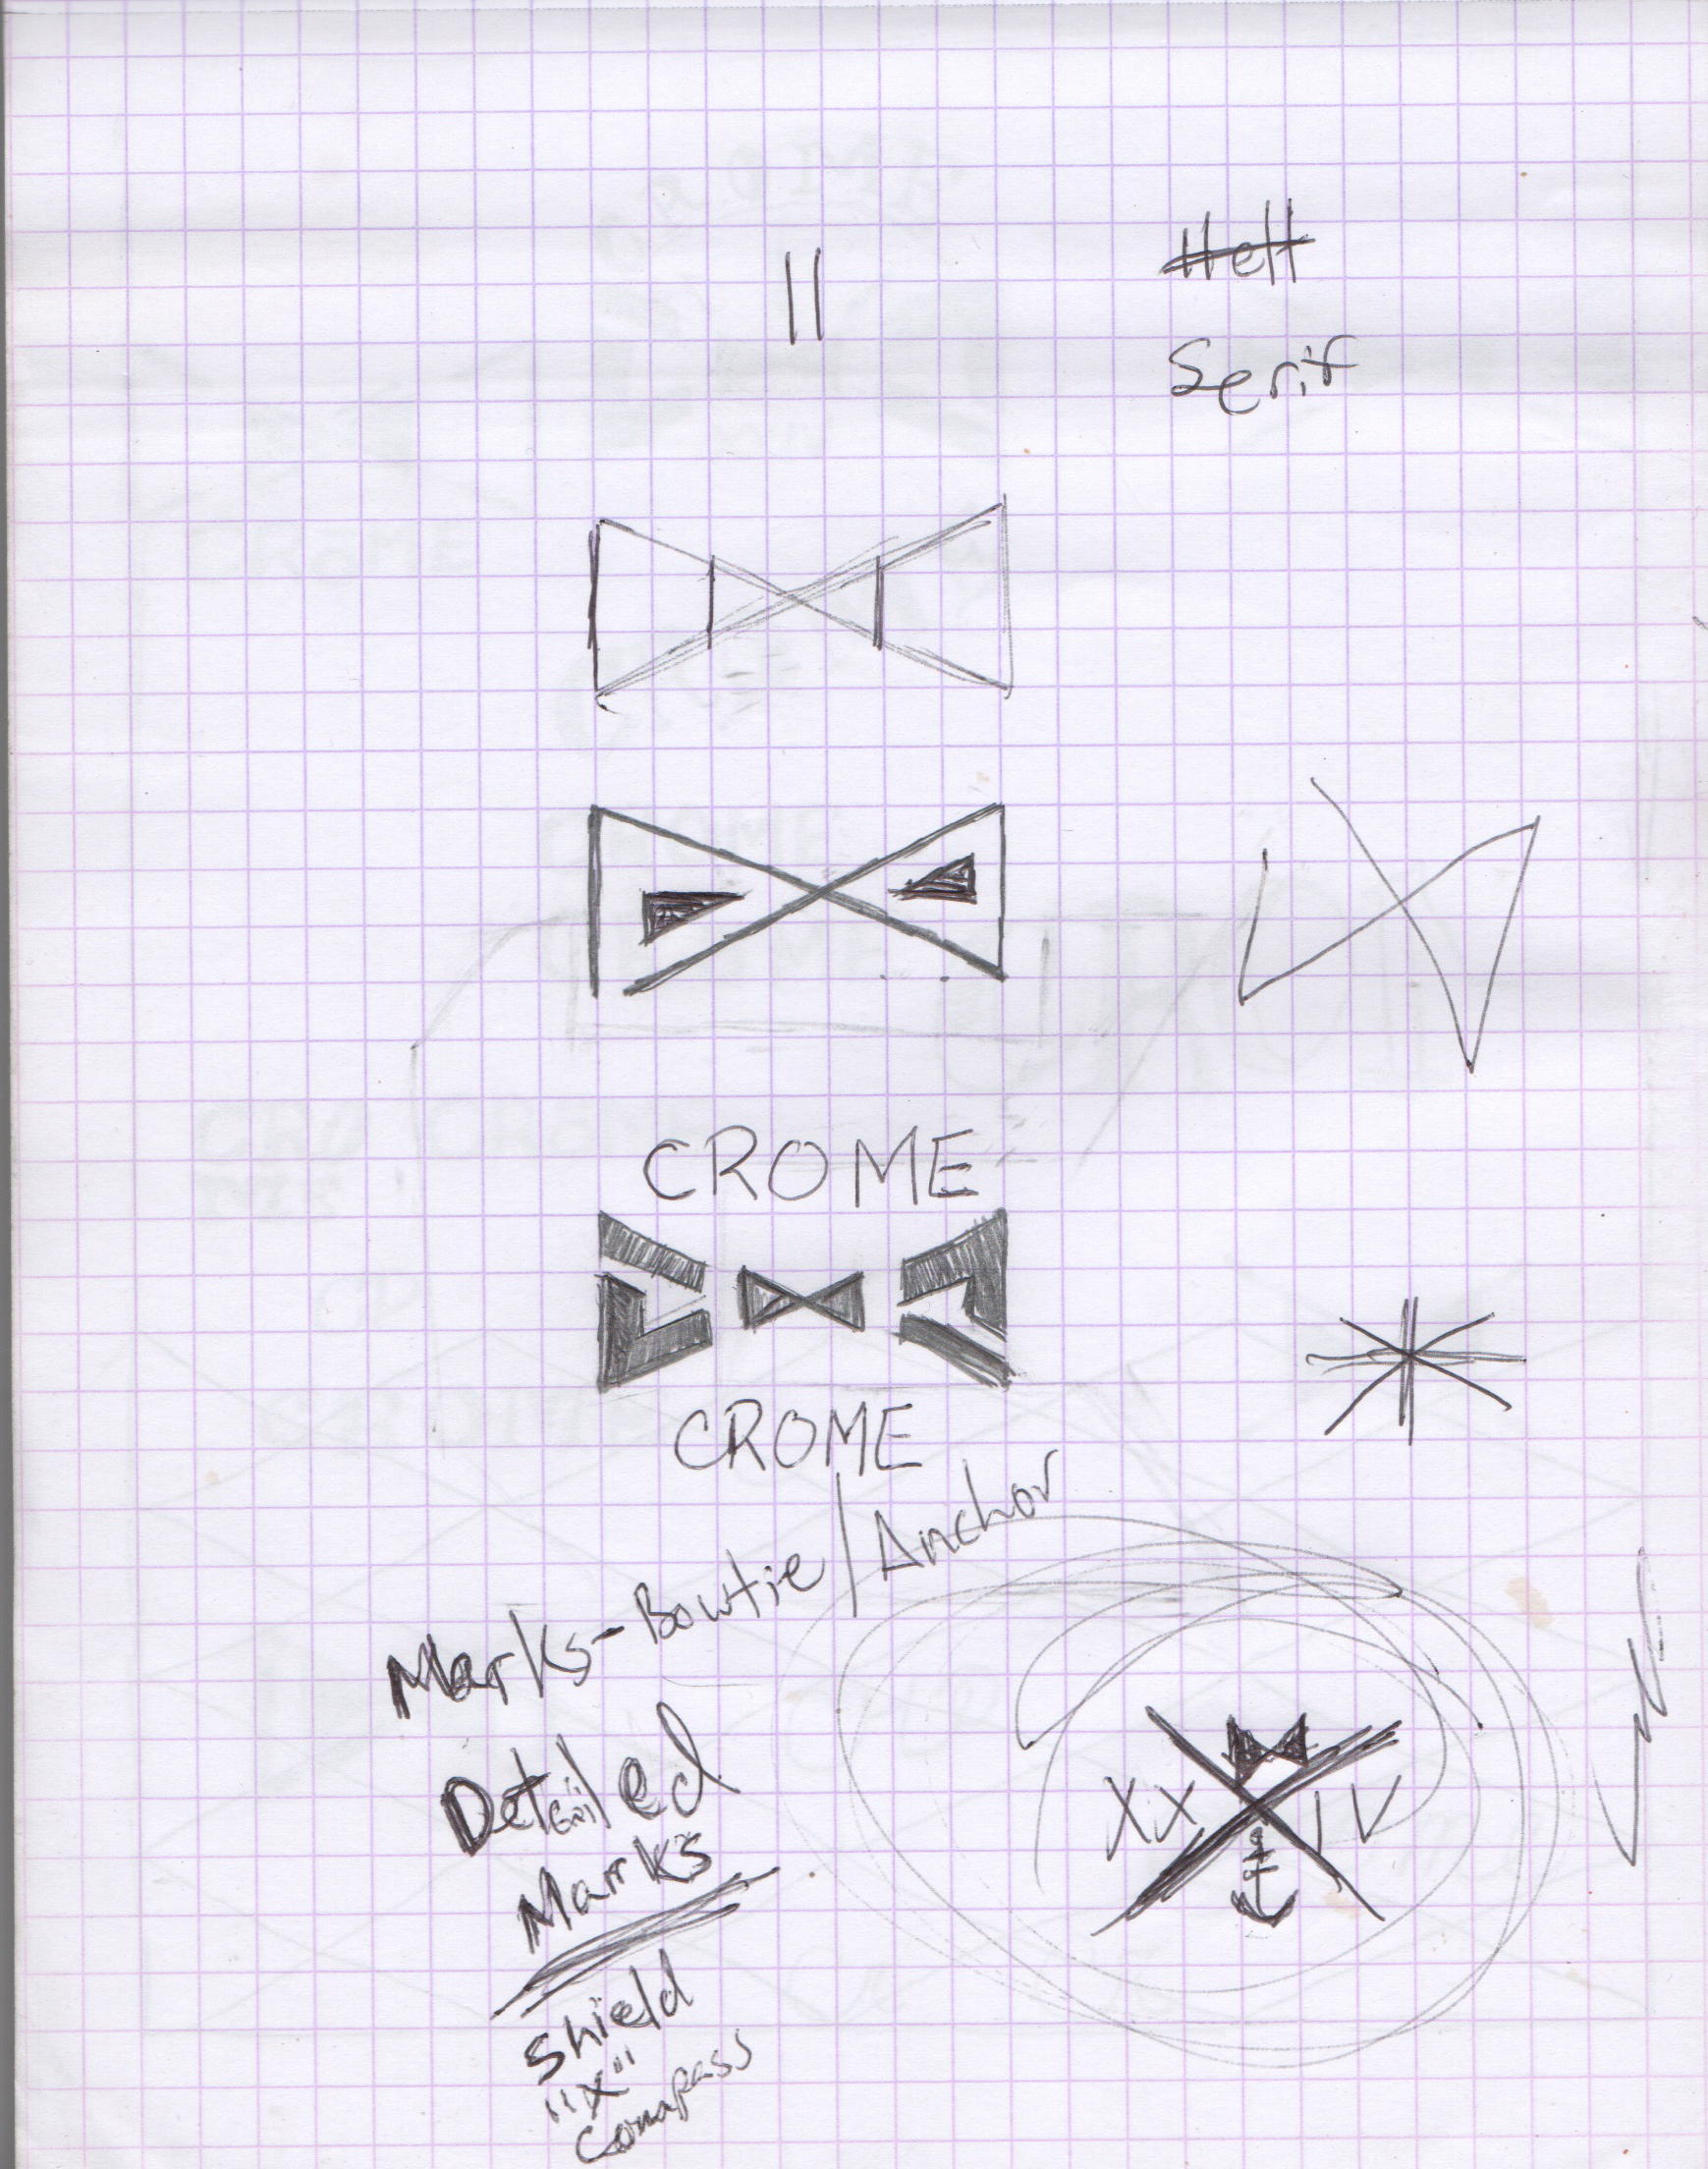 Serif
CROME
CROME
Marks - Bowtie / Anchor
Detailed
Marks
Shield
"X"
Compass
XX IV